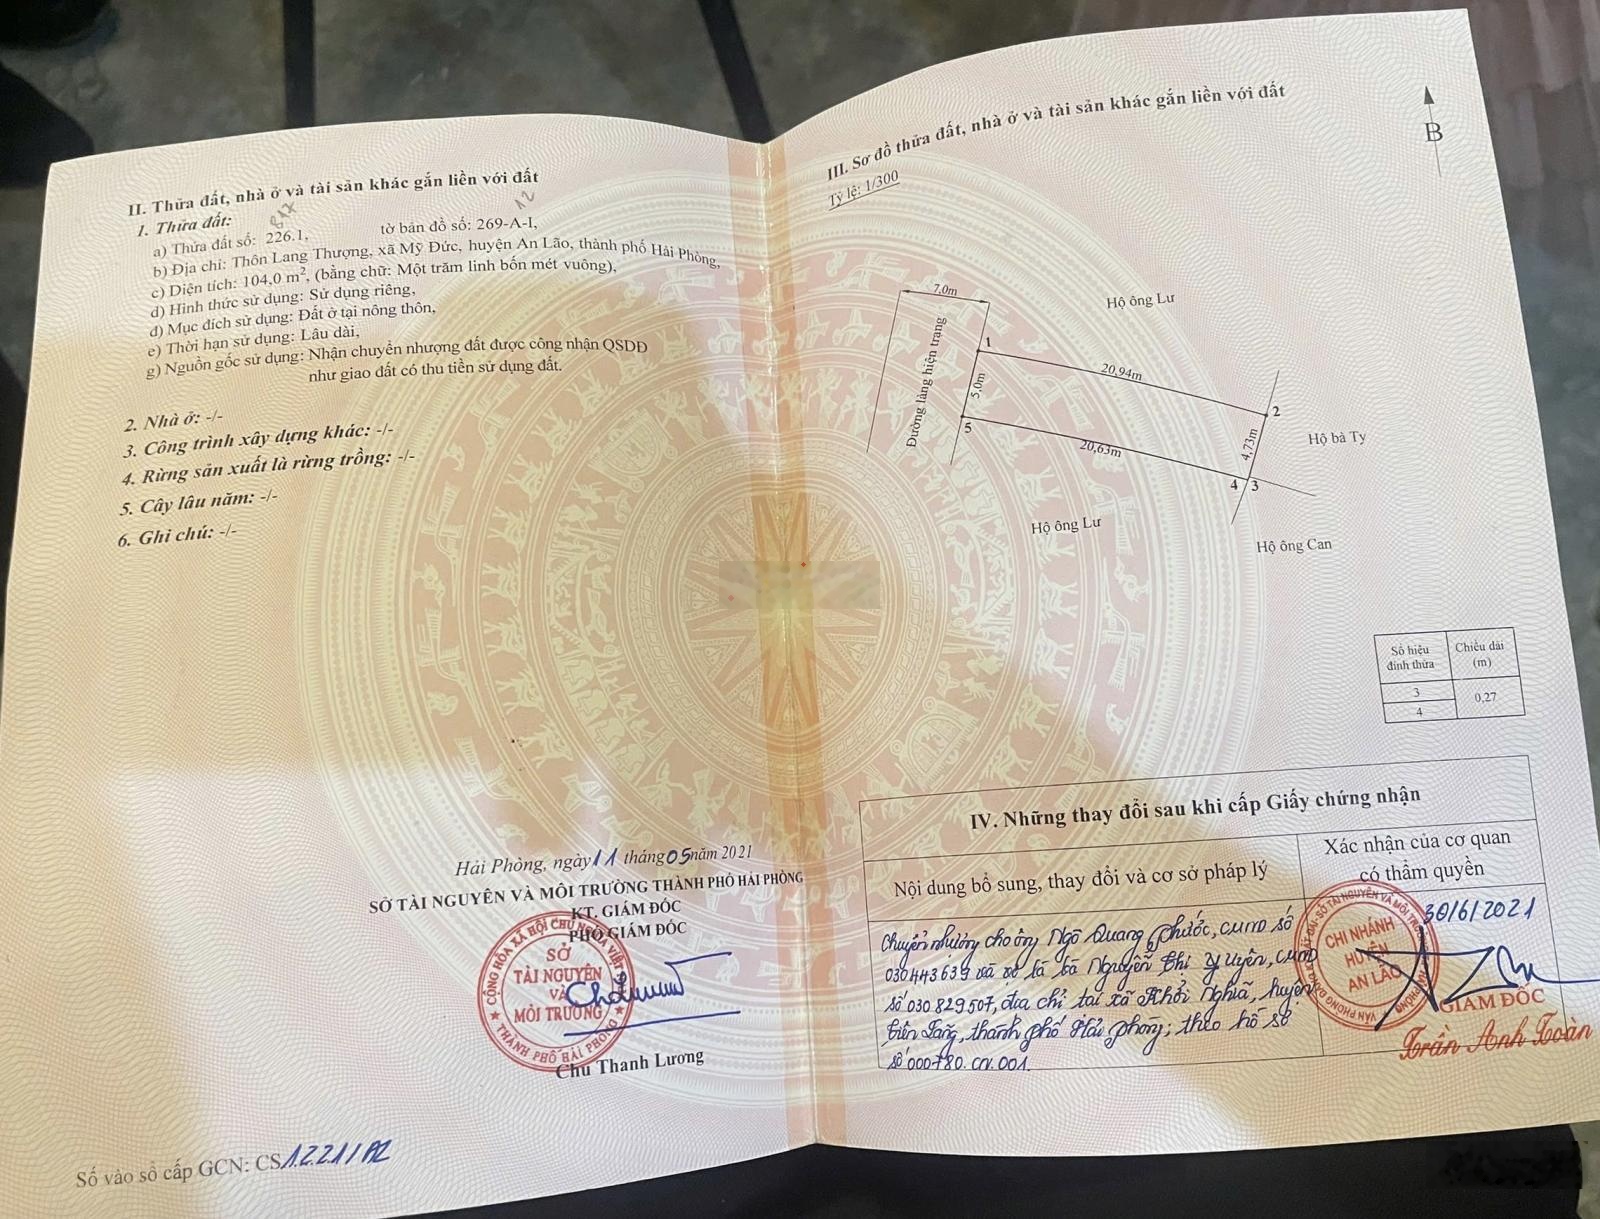 II. Thửa đất, nhà ở và tài sản khác gắn liền với đất
1. Thửa đất:
12
a) Thửa đất số: 226.1, tờ bản đồ số: 269-A-I,
b) Địa chỉ: Thôn Lang Thượng, xã Mỹ Đức, huyện An Lão, thành phố Hải Phòng,
c) Diện tích: 104,0 m², (bằng chữ: Một trăm linh bốn mét vuông),
d) Hình thức sử dụng: Sử dụng riêng,
đ) Mục đích sử dụng: Đất ở tại nông thôn,
e) Thời hạn sử dụng: Lâu dài,
g) Nguồn gốc sử dụng: Nhận chuyển nhượng đất được công nhận QSDĐ
như giao đất có thu tiền sử dụng đất.
2. Nhà ở: -/-
3. Công trình xây dựng khác: -/-
4. Rừng sản xuất là rừng trồng: -/-
5. Cây lâu năm: -/-
6. Ghi chú: -/-
Hải Phòng, ngày 11 tháng 05 năm 2021
SỞ TÀI NGUYÊN VÀ MÔI TRƯỜNG THÀNH PHỐ HẢI PHÒNG
KT. GIÁM ĐỐC
PHÓ GIÁM ĐỐC
CỘNG HÒA XÃ HỘI CHỦ NGHĨA VIỆT
SỞ
TÀI NGUYÊN
VÀ
MÔI TRƯỜNG
THÀNH PHỐ HẢI PHÒNG
Chu Thanh Lương
Số vào sổ cấp GCN: CS1221/AL
III. Sơ đồ thửa đất, nhà ở và tài sản khác gắn liền với đất
Tỷ lệ: 1/300
B
7,0m
Hộ ông Lư
Đường làng hiện trạng
1
20,94m
5,0m
2
5
4,73m
Hộ bà Ty
20,63m
4 3
Hộ ông Lư
Hộ ông Can
Số hiệu đỉnh thửa
Chiều dài (m)
3
0,27
4
IV. Những thay đổi sau khi cấp Giấy chứng nhận
Nội dung bổ sung, thay đổi và cơ sở pháp lý
Xác nhận của cơ quan
có thẩm quyền
Chuyển nhượng cho ông Ngô Quang Phước, CMND số
030443639 và vợ là bà Nguyễn Thị Uyên, CMND
số 030829507, địa chỉ tại xã Khởi Nghĩa, huyện
Tiên Lãng, thành phố Hải Phòng; theo hồ sơ
số 000780.CN.001.
30/6/2021
CHI NHÁNH
HUYỆN
AN LÃO
GIÁM ĐỐC
Trần Anh Toàn